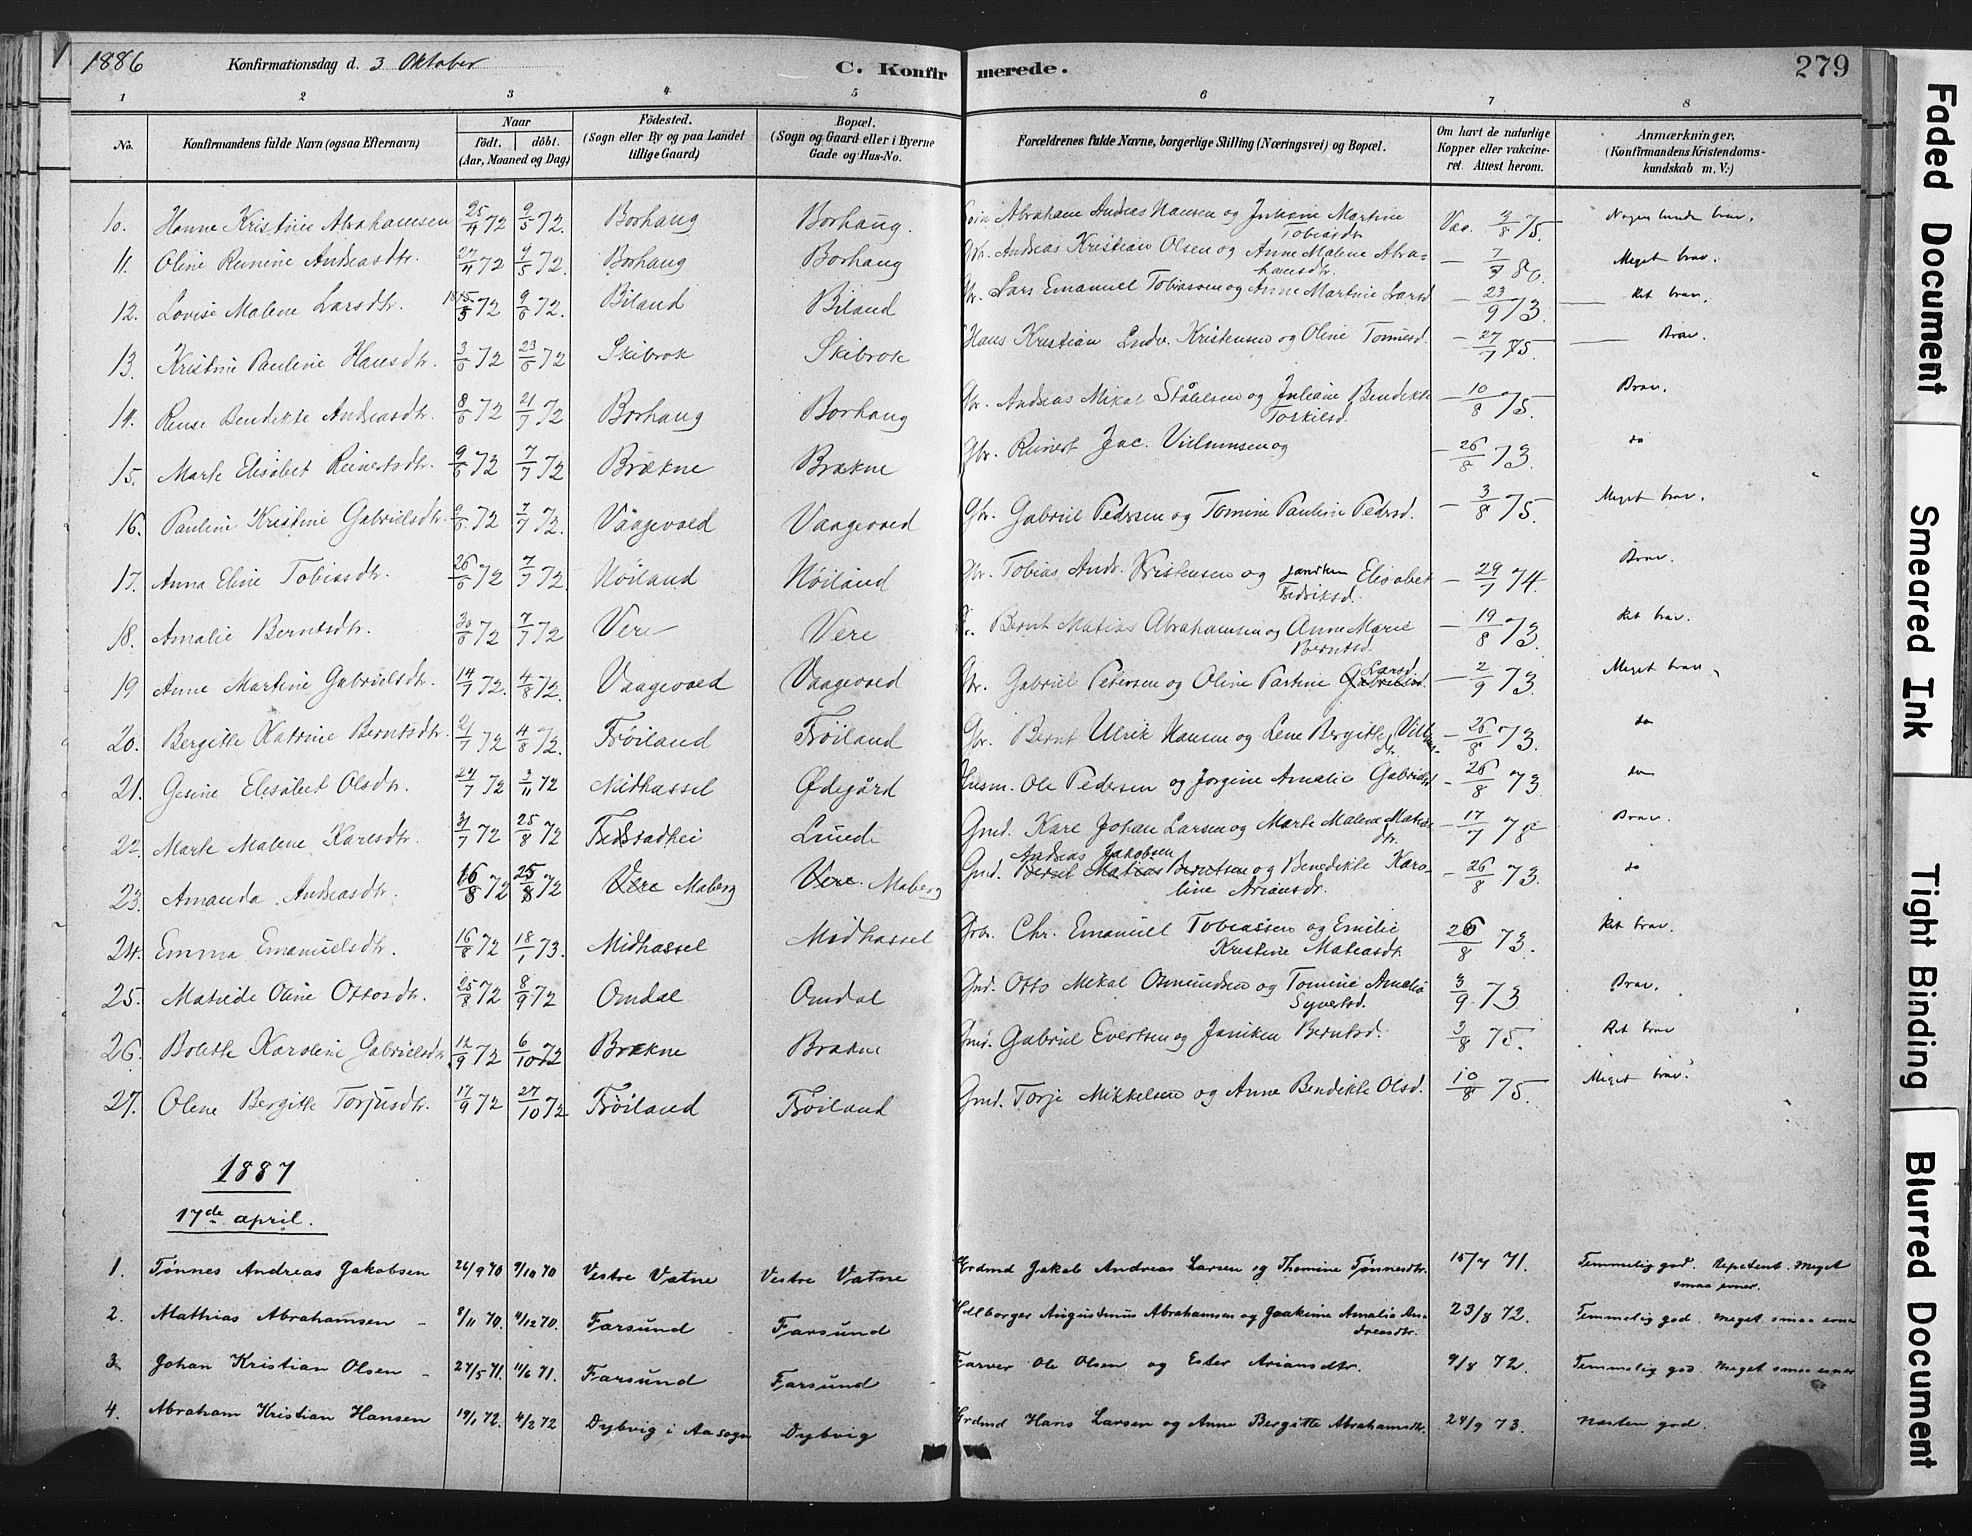 1886 Konfirmationsdag d. 3 Oktober C. Konfirmerede. 279
1 2 3 4 5 6 7 8
No. Konfirmandens fulde Navn (ogsaa Efternavn) Naar født. døbt. (Aar, Maaned og Dag) Fødested. (Sogn eller By og paa Landet tillige Gaard) Bopæl. (Sogn og Gaard eller i Byerne Gade og Hus-No. Forældrenes fulde Navne, borgerlige Stilling (Næringsvei) og Bopæl. Om havt de naturlige Kopper eller vakcineret. Attest herom. Anmærkninger. (Konfirmandens Kristendomskundskab m. V.)
10. Hanne Kristine Abrahamsen 25/4 72 9/5 72. Borhaug Borhaug. Abraham Andreas Hansen og Juliane Martine Tobiasdtr Vac. 3/8 75. Nogenlunde brav.
11. Oline Reinine Andreasdtr. 27/4 72 9/5 72. Borhaug Borhaug Gbr. Andreas Kristian Olsen og Anne Malene Abrahamsdtr. – 7/7 80 Meget brav.
12. Lovise Malene Larsdtr. 15/5 72 9/6 72. Biland Biland Gbr. Lars Emanuel Tobiassen og Anne Martine Larsd – 23/9 73. Ret brav.
13. Kristine Pauline Hansdtr. 3/6 72 23/6 72 Skibrok Skibrok Hans Kristian Ludv. Kristensen og Oline Tomined. – 27/7 75. Brav.
14. Rense Bendikte Andreasdtr. 8/6 72 21/7 72 Borhaug Borhaug Gbr. Andreas Mikal Ståhlsen og Juliane Bendikte Torkilsd. – 10/8 75. Brav.
15. Marte Elisabet Reinertsdtr. 9/6 72 7/7 72 Brækne Brækne Gbr. Reinert Jac. Villumsen og – 26/8 73. do
16. Pauline Kristine Gabrielsdtr. 9/6 72 7/7 72. Vaagevold Vaagevold Gbr. Gabriel Pedersen og Tomine Pauline Pedersd. – 3/8 75. Meget brav.
17. Anna Eline Tobiasdtr. 26/6 72 7/7 72. Nøiland Nøiland Gbr. Tobias Andr. Kristensen og Janiken Elisabet Fredriksd. – 29/7 74. Brav.
18. Amalie Berntsdtr. 30/6 72 7/7 72 Vere Vere Bernt Matias Abrahamsen og Anne Marie Berntsd. – 19/8 73. Ret brav.
19 Anne Martine Gabrielsdtr. 14/7 72. 4/8 72. Vaagevold Vaagevold Gbr. Gabriel Petersen og Oline Partine Gabrielsd. Larsd. – 2/9 73. Meget brav.
20. Bergitte Katrine Berntsdtr. 21/7 72 4/8 72. Frøiland Frøiland Gbr. Bernt Ulrik Hansen og Lene Bergitte Villumsdtr. – 26/8 73. do
21. Gesine Elisabet Olsdtr. 24/7 72 3/11 72 Midhassel Ødegård Husm. Ole Pedersen og Jorgine Amalie Gabrielsd – 26/8 73. do
22. Marte Malene Karlsdtr. 31/7 72 25/8 72 Lunde Gmd. Karl Johan Larsen og Marte Malene Matiasdtr. – 17/7 78 Brav.
23. Amanda Andreasdtr. 16/8 72 25/8 72 Vere Maberg Vere Maberg Gmd. Andreas Jakobsen Bernt Matias Berntsen og Benedikte Karoline Ariansdr. – 26/8 73. do
24. Emma Emanuelsdtr. 16/8 72 18/1 73. Midhassel Midhassel Gbr. Chr. Emanuel Tobiassen og Emilie Kristine Mateasdt. 26/8 73. Ret brav.
25. Matilde Oline Ottosdtr. 25/8 72 8/9 72 Omdal Omdal Gmd. Otto Mikal Osmundsen og Tomine Amalie Syvertsd. 3/9 73 Brav.
26. Bolette Karoline Gabrielsdtr. 12/9 72 6/10 72 Brækne Brækne Gmd. Gabriel Evertsen og Janiken Berntsd. 3/8 75. Ret brav
27. Olene Bergitte Torjusdtr. 17/9 72 27/10 72 Frøiland Frøiland Gmd. Torje Mikkelsen og Anne Bendikte Olsd. 10/8 75. Meget brav.
1887
17de april.
1. Tønnes Andreas Jakobsen 26/9 70 9/10 70 Vestre Vatne Vestre Vatne Grdmd Jakob Andreas Larsen og Thomine Tønnesdtr. 15/7 71. Temmelig god. Repetent. Meget smaa evner.
2. Mathias Abrahamsen – 8/11 70. 4/12 70. Farsund Farsund Augustinus Abrahamsen og Joakime Amalia Andreasdtr. 23/8 72. Temmelig god. Meget smaa evner
3. Johan Kristian Olsen – 27/5 71. 11/6 71. Farsund Farsund Farver Ole Olsen og Ester Ariansdtr. 9/8 72. Temmelig god. Meget smaa evner
4. Abraham Kristian Hansen 19/1 72. 4/2 72 Dybvig i Aa sogn Dybvig Grdmd Hans Larsen og Anne Bergitte Abrahamsdtr. 24/9 73. Næsten god.
Faded Document
Smeared Ink
Tight Binding
Blurred Document